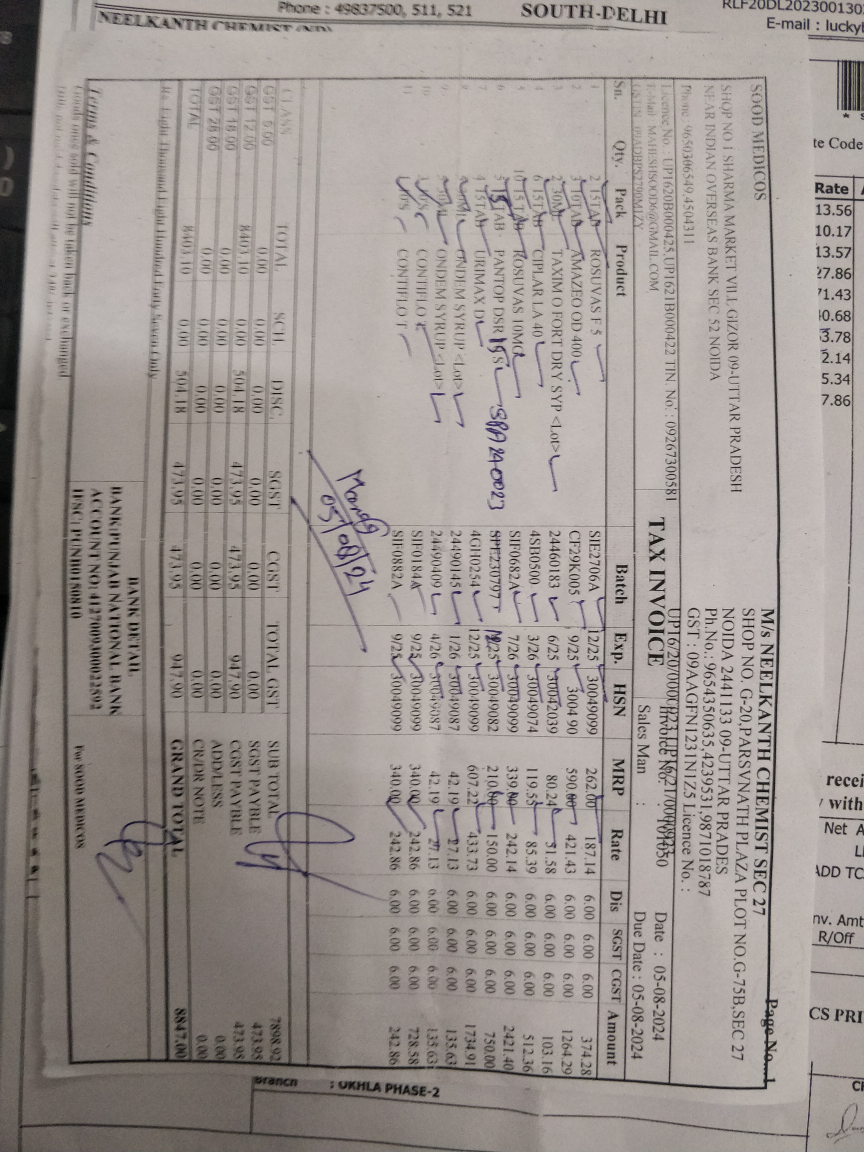 Phone : 49837500, 511, 521
SOUTH-DELHI
E-mail : lucky
NEELKANTH CHEMIST
Page No..1
SOOD MEDICOS
M/s NEELKANTH CHEMIST SEC 27
SHOP NO 1 SHARMA MARKET VILL GIZOR 09-UTTAR PRADESH
SHOP NO. G-20,PARSVNATH PLAZA PLOT NO.G-75B,SEC 27
NEAR INDIAN OVERSEAS BANK SEC 52 NOIDA
NOIDA 2441133 09-UTTAR PRADES
Ph.No.: 9654350635,4239531,9871018787
Phone: 9650306549,4504311
GST : 09AAGFN1231N1Z5 Licence No. :
Licence No. : UP1620B000425,UP1621B000422 TIN. No. : 09267300581
E-Mail MAHESHSOOD6@GMAIL.COM
TAX INVOICE
Invoice No. : Date : 05-08-2024
Sales Man : Due Date : 05-08-2024
Sn. Qty. Pack Product Batch Exp. HSN MRP Rate Dis SGST CGST Amount
1 2 15TAB ROSUVAS F 5 SIE2706A 12/25 30049099 262.00 187.14 6.00 6.00 6.00 374.28
2 3 10TAB AMAZEO OD 400 CF29K005 9/25 300490 590.00 421.43 6.00 6.00 6.00 1264.29
3 2 30ML TAXIM O FORT DRY SYP <Lot> 24460183 6/25 30042039 80.24 51.58 6.00 6.00 6.00 103.16
4 6 15TAB CIPLAR LA 40 4SB0500 3/26 30049074 119.55 85.39 6.00 6.00 6.00 512.36
5 10 15TAB ROSUVAS 10MG SIF0682A 7/26 30049099 339.00 242.14 6.00 6.00 6.00 2421.40
6 5 15TAB PANTOP DSR 15'S SPA240023 SPE230797T 12/25 30049082 210.00 150.00 6.00 6.00 6.00 750.00
7 4 15TAB URIMAX D 4GH0254 12/25 30049099 607.22 433.73 6.00 6.00 6.00 1734.91
8 ONDEM SYRUP <Lot> 24490145 1/26 30049087 42.19 27.13 6.00 6.00 6.00 135.63
9 ONDEM SYRUP <Lot> 24490409 4/26 30049087 42.19 27.13 6.00 6.00 6.00 135.63
10 CONTIFLO T SIF0184A 9/25 30049099 340.00 242.86 6.00 6.00 6.00 728.58
11 CONTIFLO T SIF0882A 9/25 30049099 340.00 242.86 6.00 6.00 6.00 242.86
05/08/24
CLASS TOTAL SCH. DISC. SGST CGST TOTAL GST
GST 5.00 0.00 0.00 0.00 0.00 0.00 0.00
GST 12.00 8403.10 0.00 504.18 473.95 473.95 947.90
GST 18.00 0.00 0.00 0.00 0.00 0.00 0.00
GST 28.00 0.00 0.00 0.00 0.00 0.00 0.00
TOTAL 8403.10 0.00 504.18 473.95 473.95 947.90
SUB TOTAL 7898.92
SGST PAYBLE 473.95
CGST PAYBLE 473.95
ADD/LESS 0.00
CR/DR NOTE 0.00
GRAND TOTAL 8847.00
Rs. Eight Thousand Eight Hundred Forty Seven Only
Terms & Conditions
Goods once sold will not be taken back or exchanged
BANK DETAIL
BANK:PUNJAB NATIONAL BANK
ACCOUNT NO: 4127009300022592
IFSC: PUNB0150810
For SOOD MEDICOS
te Code
Rate
13.56
10.17
13.57
27.86
71.43
3.78
2.14
5.34
7.86
recei
with
Net A
ADD TC
nv. Amt
R/Off
CS PRI
Branch : OKHLA PHASE-2